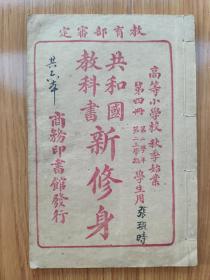 教育部審定
高等小學校 秋季始業
第四冊
第二學年
第一學期
學生用
共和國
教科書
新修身
共六本
商務印書館發行